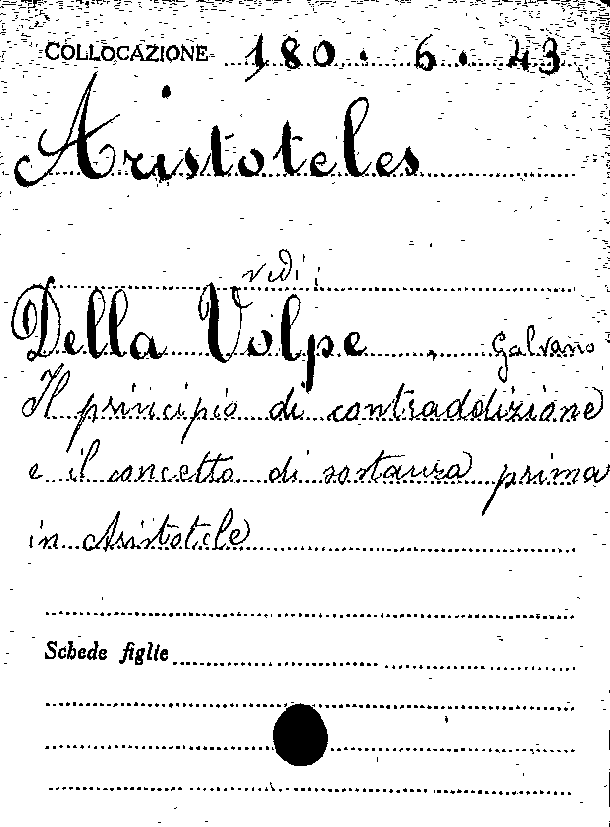 COLLOCAZIONE 180. 6. 43
Aristoteles
vedi:
Della Volpe, Galvano
Il principio di contraddizione
e il concetto di sostanza prima
in Aristotele
Schede figlie